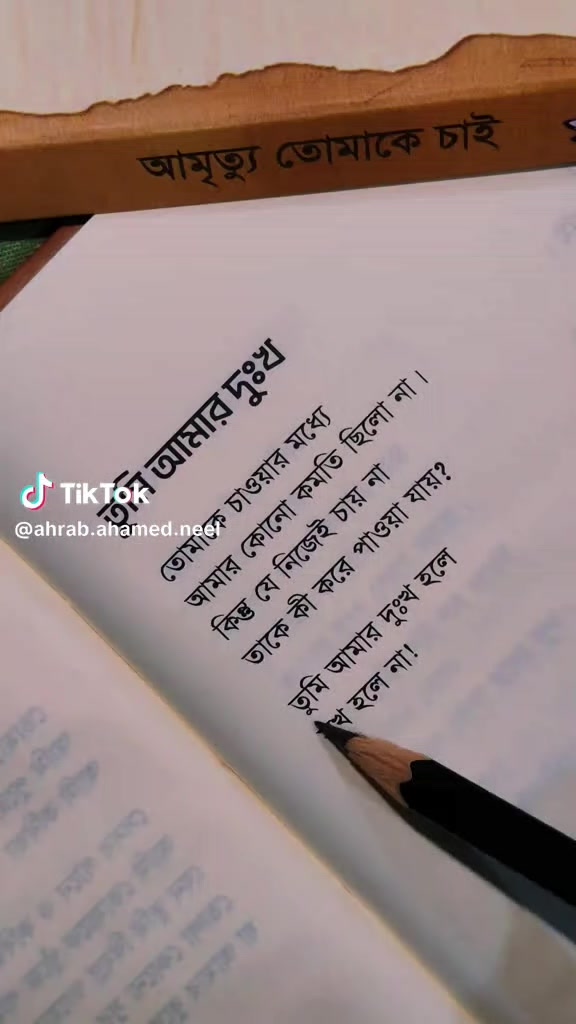 আমৃত্যু তোমাকে চাই
তুমি আমার দুঃখ
তোমাকে চাওয়ার মধ্যে
আমার কোনো কমতি ছিলো না।
কিন্তু যে নিজেই চায় না
তাকে কী করে পাওয়া যায়?
তুমি আমার দুঃখ হলে
হলে না!
TikTok
@ahrab.ahamed.neel